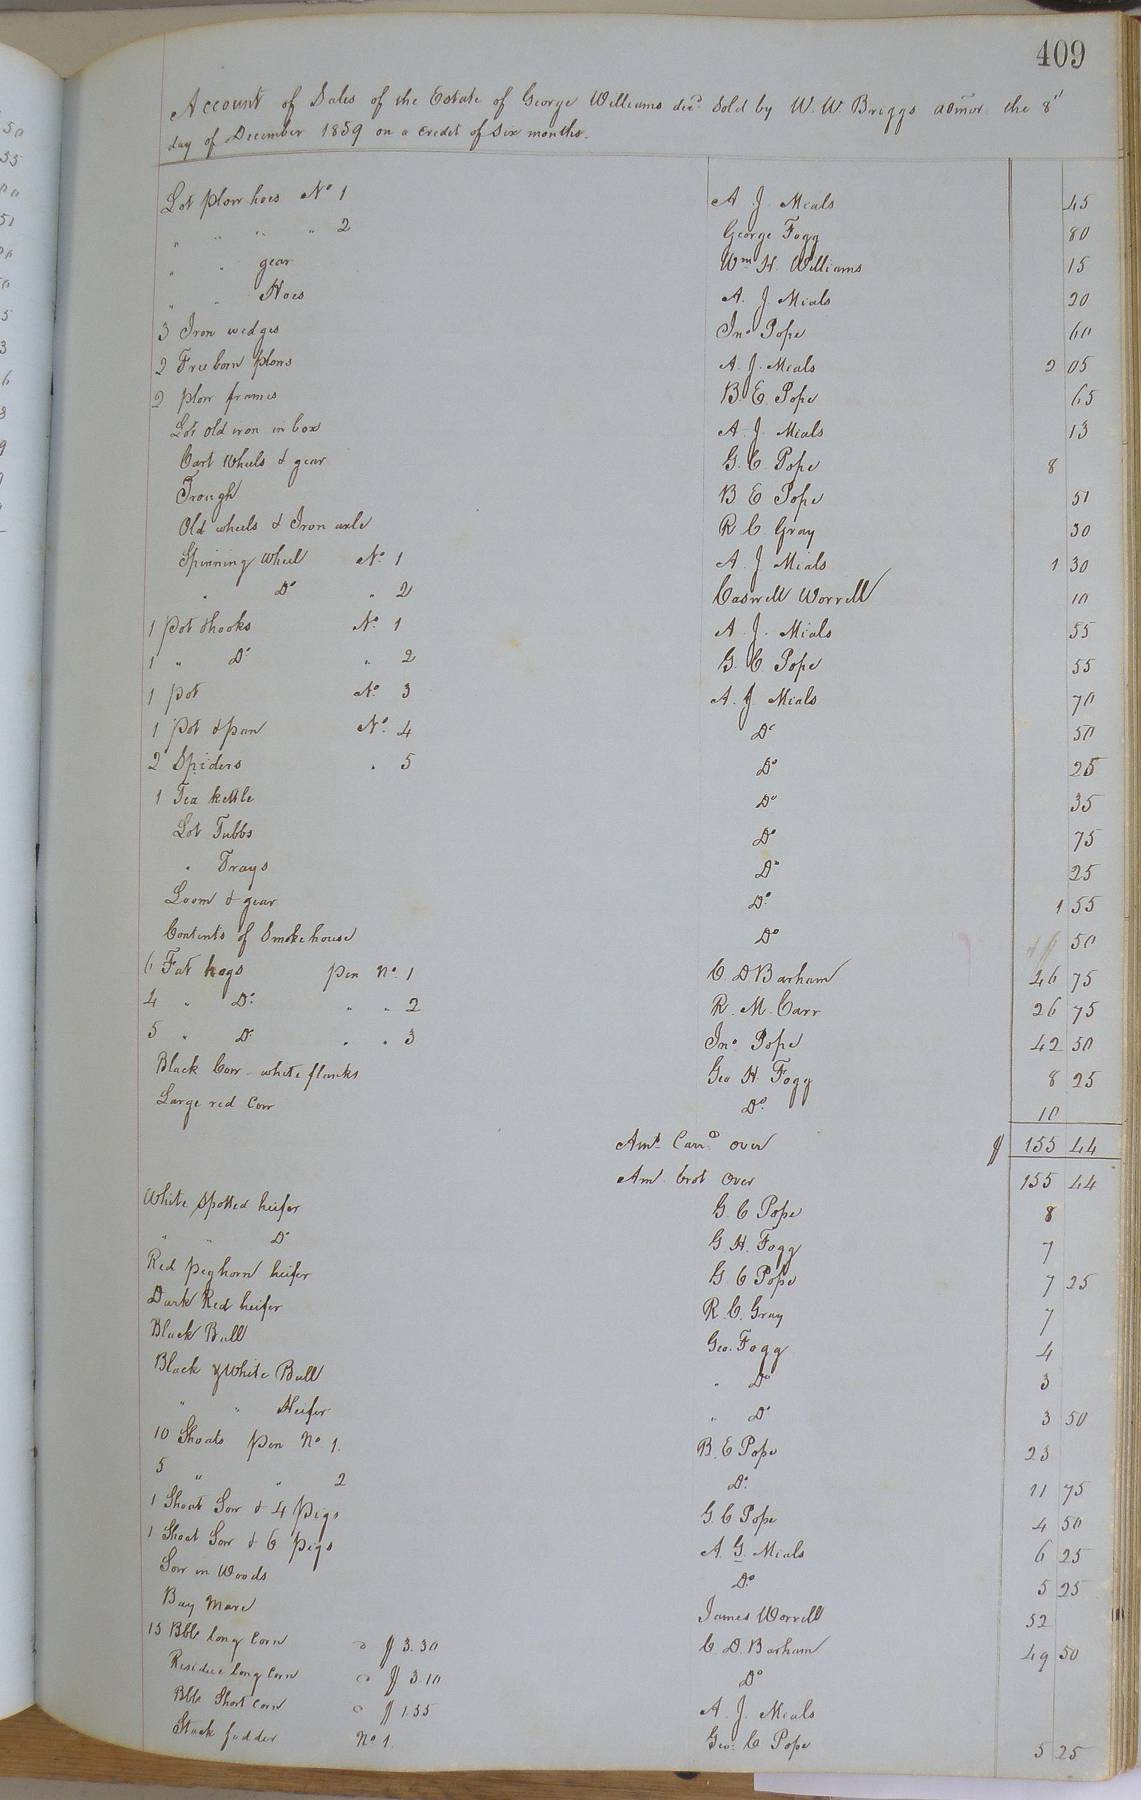 409
Account of Sales of the Estate of George Williams decd. Sold by W. W. Briggs admor the 8"
day of December 1859 on a credit of six months.
Lot plow hoes No 1 A. J. Meals 45
" " " " 2 George Fogg 80
" " gear Wm H. Williams 15
" " Hoes A. J. Meals 20
3 Iron wedges Jno Pope 60
2 Freeborn plows A. J. Meals 2 05
2 plow frames B. E. Pope 65
Lot old iron in box A. J. Meals 13
Cart Wheels & gear G. C. Pope 8
Trough B E Pope 51
Old wheels & Iron axle R C Gray 30
Spinning Wheel No. 1 A. J Meals 1 30
" Do " 2 Caswell Worrell 10
1 Pot & hooks No. 1 A. J. Meals 55
1 " Do " 2 G. C Pope 55
1 pot No. 3 A. J Meals 70
1 Pot & pan No. 4 Do 50
2 Spiders " 5 Do 25
1 Tea kettle Do 35
Lot Tubbs Do 75
" Trays Do 25
Loom & gear Do. 1 55
Contents of Smokehouse Do 50
6 Fat hogs pen No. 1 C. D Barham 46 75
4 " Do. " " 2 R. M. Carr 26 75
5 " Do " " 3 Jno Pope 42 50
Black Cow white flanks Geo H. Fogg 8 25
Large red Cow Do. 10
Amt. Card. over $ 155 44
Am brot over 155 44
White Spotted heifer G. C Pope 8
" " Do G H. Fogg 7
Red peghorn heifer G. C Pope 7 25
Dark Red heifer R. C. Gray 7
Black Bull Geo. Fogg 4
Black & White Bull " Do 3
" " Heifer " Do 3 50
10 Shoats pen No 1. B. E Pope 23
5 " " 2 Do. 11 75
1 Shoat Sow & 4 Pigs G. C Pope 4 50
1 Shoat Sow & 6 pigs A. G. Meals 6 25
Sow in Woods Do. 5 25
Bay Mare James Worrell 52
15 Bbls long Corn @ $ 3.30 C. D. Barham 49 50
Residue long Corn @ $ 3.10 Do
Bbls Short corn @ $ 1.55 A. J. Meals
Stack fodder No 1. Geo. C Pope 5 25